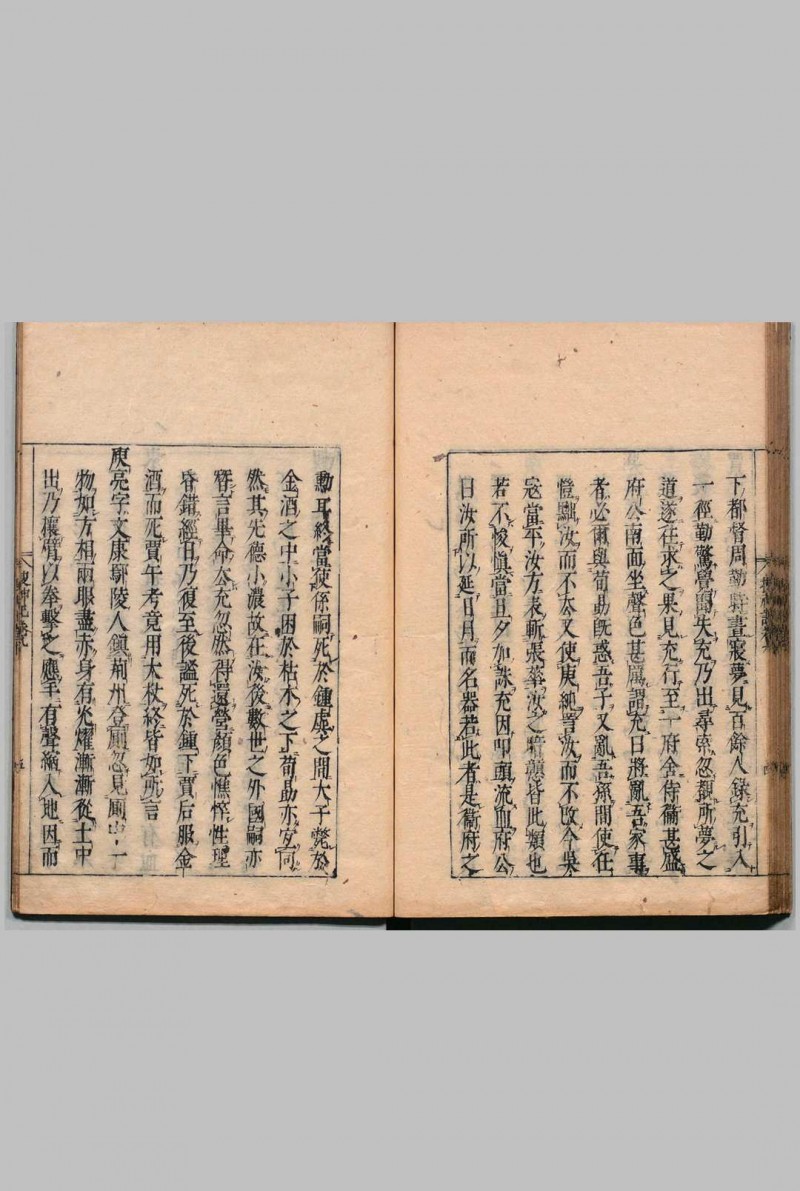 下都督周勤時晝寢夢見百餘人錄充引入
一徑勤驚覺聞失充乃出尋索忽覩所夢之
道遂往求之果見充行至一府舍侍衞甚盛
府公南面坐聲色甚厲謂充曰將亂吾家事
者必爾與荀勗旣惑吾子又亂吾孫間使任
愷黜汝而不去又使庾純詈汝而不改今吳
寇當平汝方表斬張華汝之暗戇皆此類也
若不悛愼當旦夕加誅充因叩頭流血府公
曰汝所以延日月而名器若此者是衞府之
勳耳終當使係嗣死於鍾虡之間大子斃於
金酒之中小子困於枯木之下荀勗亦宜同
然其先德小濃故在汝後數世之外國嗣亦
替言畢命去充忽然得還營顏色憔悴性理
昏錯經日乃復至後謐死於鍾下賈后服金
酒而死賈午考竟用大杖終皆如所言
庾亮字文康鄢陵人鎭荊州登厠忽見厠中一
物如方相兩眼盡赤身有光耀漸漸從土中
出乃攘臂以拳擊之應手有聲縮入地因而
搜神記卷九
五